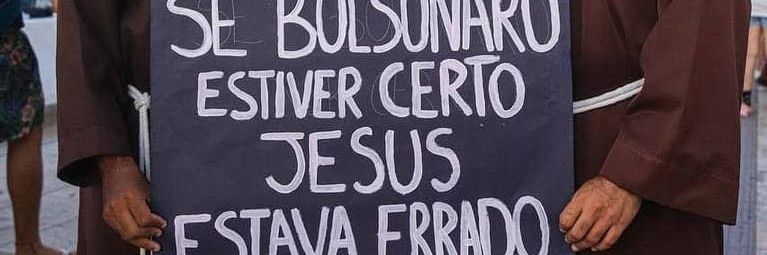 SE BOLSONARO
ESTIVER CERTO
JESUS
ESTAVA ERRADO